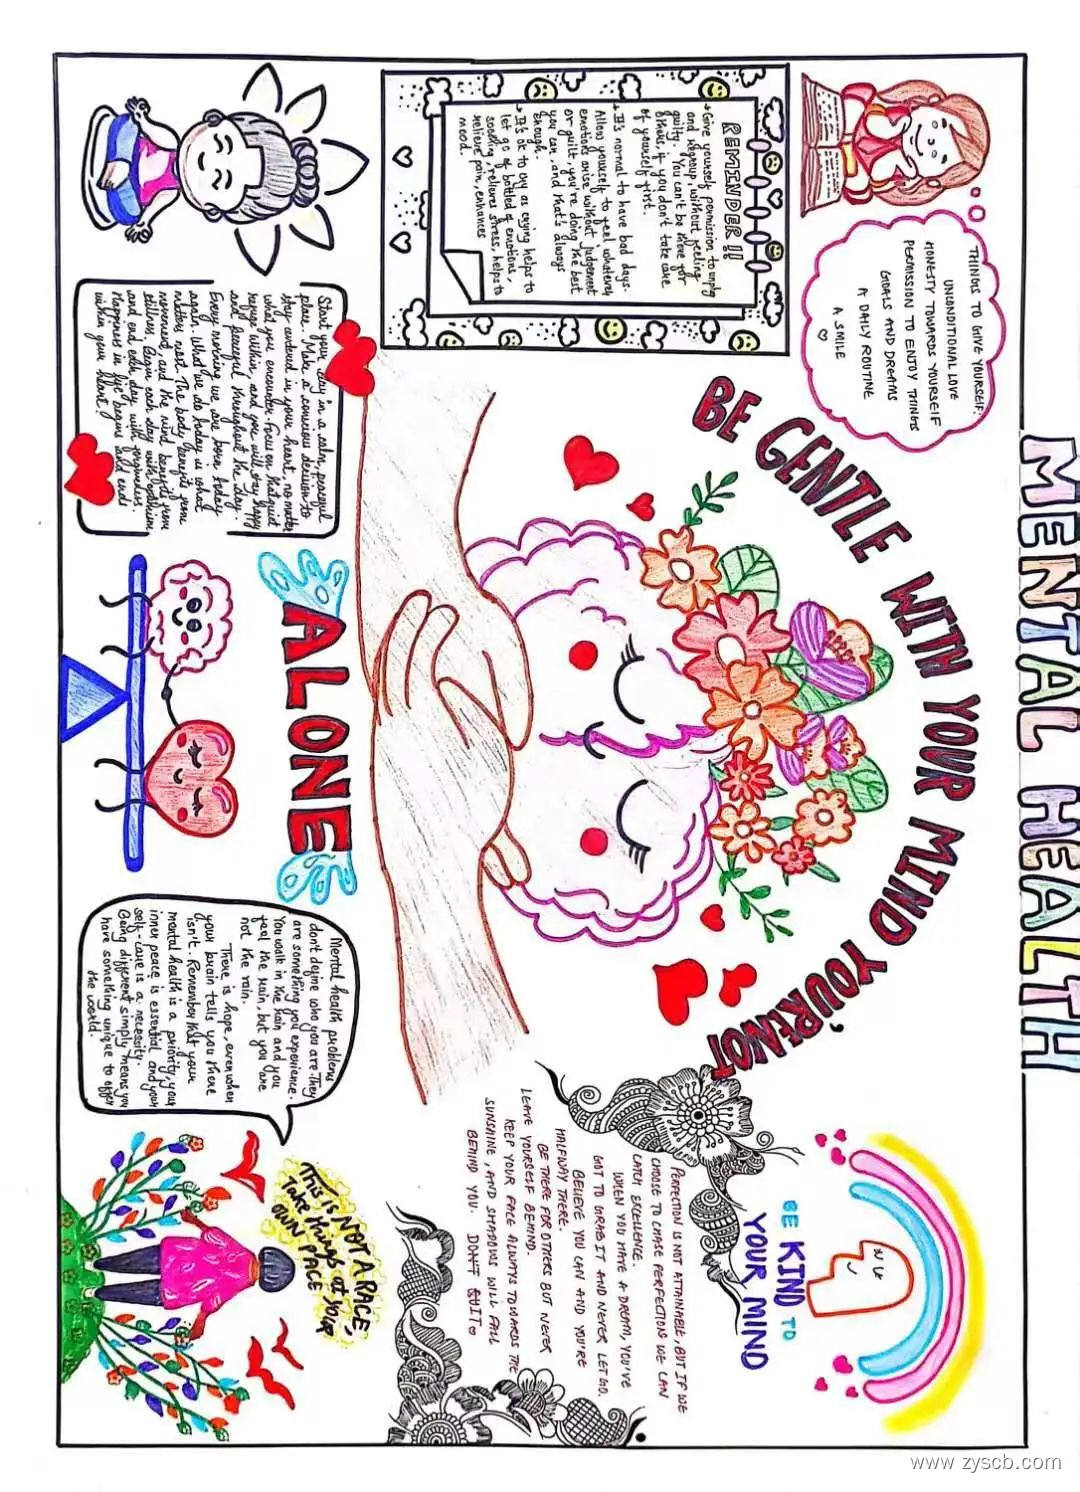 MENTAL HEALTH
THINGS TO GIVE YOURSELF:
UNCONDITIONAL LOVE
HONESTY TOWARDS YOURSELF
PERMISSION TO ENJOY THINGS
GOALS AND DREAMS
A DAILY ROUTINE
A SMILE
REMINDER!!
Give yourself permission to empty
and regroup, without feeling
guilty. You can't be there for
others, if you don't take care
of yourself first.
It's normal to have bad days.
Allow yourself to feel whatever
emotions arise without judgement
or guilt, you're doing the best
you can, and that's always
enough.
It's ok to cry as crying helps to
let go of bottled of emotions,
soothing, relieves stress, helps to
relieve pain, enhances
mood.
BE GENTLE WITH YOUR MIND YOU'RE NOT
ALONE
Start your day in a calm, peaceful
place. Make a conscious decision to
stay centered in your heart, no matter
what you encounter. Focus on that quiet
refuge within, and you will stay happy
and peaceful throughout the day.
Every morning we are born today
again. What we do today is what
matters most. The body benefits from
movement, and the mind benefits from
stillness. Begin each day with optimism
and end each day with forgiveness.
Happiness in life begins and ends
within your heart!
Mental health problems
don't define who you are. They
are something you experience.
You walk in the rain and you
feel the rain, but you are
not the rain.
There is hope, even when
your brain tells you there
isn't. Remember that your
mental health is a priority, your
inner peace is essential and your
self-care is a necessity.
Being different simply means you
have something unique to offer
the world.
BE KIND TO
YOUR MIND
PERFECTION IS NOT ATTAINABLE, BUT IF WE
CHOOSE TO CHASE PERFECTION WE CAN
CATCH EXCELLENCE.
WHEN YOU HAVE A DREAM, YOU'VE
GOT TO GRAB IT AND NEVER LET GO.
BELIEVE YOU CAN AND YOU'RE
HALFWAY THERE.
BE THERE FOR OTHERS BUT NEVER
LEAVE YOURSELF BEHIND.
KEEP YOUR FACE ALWAYS TOWARDS THE
SUNSHINE, AND SHADOWS WILL FALL
BEHIND YOU. DON'T QUIT
This is NOT A RACE,
Take things at your
OWN PACE
www.zyscb.com